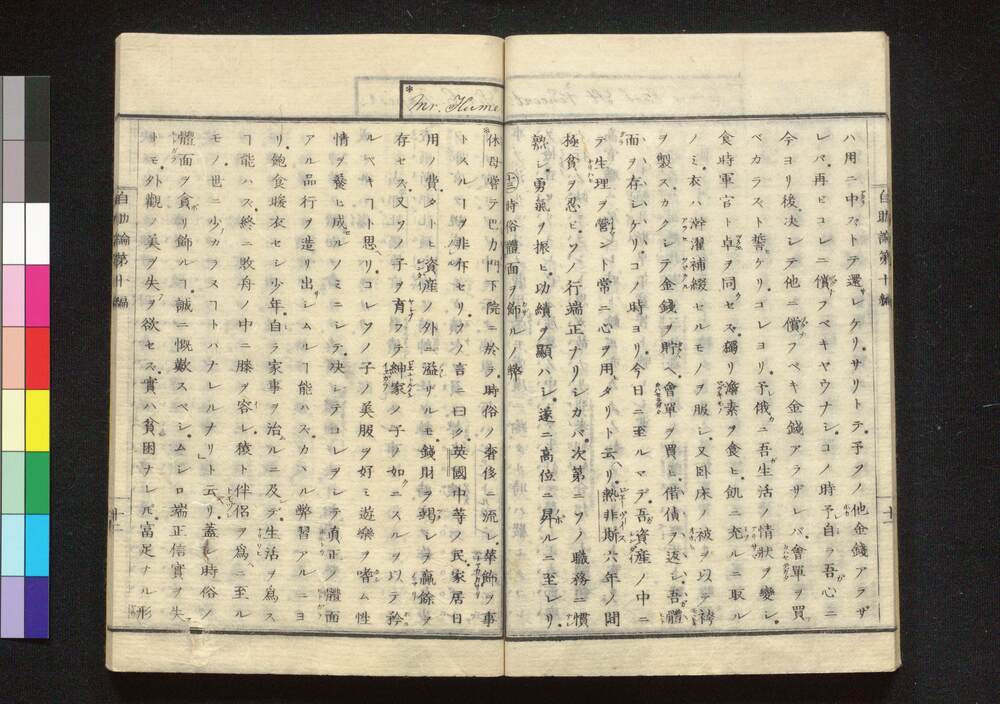 ハ用ニ中ストテ還シケリ。サリトテ予ソノ他金錢アラザ
レバ、再ビコレニ償フベキヤウナシ。コノ時予自ラ吾心ニ
今ヨリ後、决シテ他ニ償フベキ金錢アラザレバ、會單ヲ買
ベカラスト誓ヒケリ。コレヨリ予俄ニ吾生活ノ情狀ヲ變シ、
食時軍官ト卓ヲ同クセス、獨リ澹素ヲ食ヒ飢ニ充ルニ取ル
ノミ、衣ハ幹濯補綴セルモノヲ服シ、又卧床ノ被ヲ以テ袴
ヲ製ス。カクシテ金錢ヲ貯ヘ、會單ヲ買ヒ、借債ヲ返シ、吾體
面ヲ存シケリ。コノ時ヨリ今日ニ至ルマデ、吾資産ノ中ニ
テ生理ヲ營ント常ニ心ヲ用タリト云リ。熱非斯六年ノ間
極貧ヲ忍ビ、ソノ行端正ナリシカバ、次第ニソノ職務ニ慣
熟シ、勇氣ヲ振ヒ、功績ヲ顯ハシ、遂ニ高位ニ昇ルニ至レリ
(十二)時俗體面ヲ飾ルノ弊
*Mr. Hume
*休母嘗テ巴力門下院ニ於テ、時俗ノ奢侈ニ流レ、華飾ヲ事
トスルヿヲ非斥セリ。ソノ言ニ曰ク、英國中等ノ民、家居日
用ノ費、タトヒ資産ノ外ニ溢リルモ、錢財ヲ竭シテ贏餘ヲ
存セス、又ソノ子ヲ育フテ紳家ノ子ノ如クニスルヲ以テ矜
ルベキヿト思ヘリ。コレソノ子ノ美服ヲ好ミ遊樂ヲ嗜ム性
情ヲ養ヒ成ルノミニシテ、决シテコレヲシテ眞正ノ體面
アル品行ヲ造リ出サシムルヿ能ハス。カヽル弊習アルニヨ
リ、飽食暖衣セシ少年、自ラ家事ヲ治ルニ及デ、生活ヲ爲ス
ヿ能ハス、終ニ敗舟ノ中ニ膝ヲ容レ、猿ト伴侶ヲ爲ニ至ル
モノ、世ニ少カラスヿトハナレルナリト云リ。」蓋シ時俗ノ
體面ヲ貪リ飾ルヿ、誠ニ慨歎スベシ。ムシロ端正信實ヲ失
トモ、外觀ノ美ヲ失フヲ欲セス、實ハ貧困ナレバ、富足ナル形
自助論第十編
十二
自助論第十編
十二